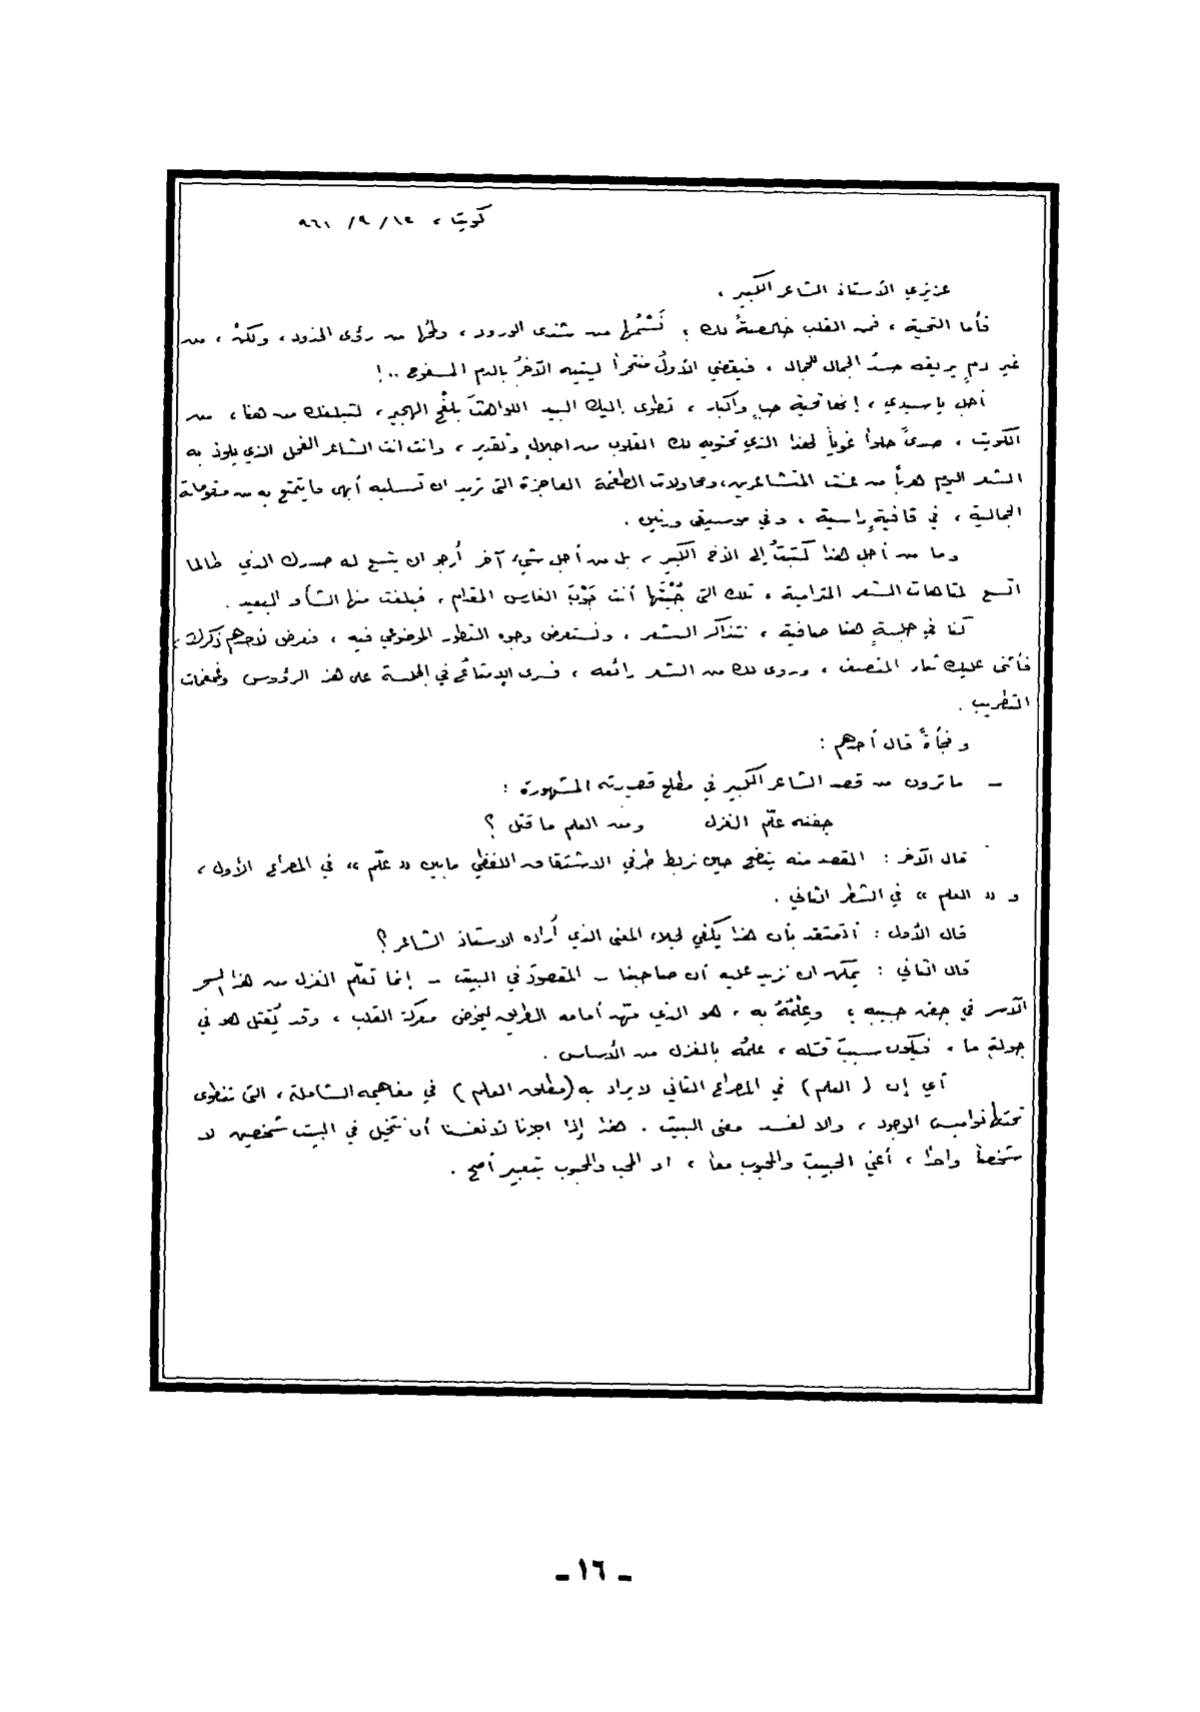 كويت ، ١٢ / ٩ / ٩٦١
عزيزي الأستاذ الشاعر الكبير .
فأما التحية ، فمن القلب خالصةً لك ؛ نَشْتُمُّها من شذى الورود ، ولحُها من رؤى الخدود ، ولكنْ ، من
غير دمٍ يريقه حسدُ الجمال للجمال ، فيقضي الأول منتحراً ليتيه الآخرُ بالدم المسفوح ..!
أجل يا سيدي ، إنها تحية حبٍ وإكبار ، تطوى إليك البيد اللواهثَ بلفْحِ الهجير ، لتبلغك من هنا ، من
الكويت ، صدىً حلواً غوياً لهذا الذي تحتويه لك القلوب من اجلالٍ وتقدير ، وانت انت الشاعر الفحل الذي يلوذ به
الشعر اليوم هرباً من عنت المتشاعرين ، ومحاولات الطغمة العاجزة التي تريد ان تسلبه أبهى ما يتمتع به من مقوماته
الجمالية ، في قافيةٍ راسية ، وفي موسيقى ورنين .
وما من أجل هذا كتبتُ إلى الأخ الكبير ، بل من أجل شيءٍ آخر أرجو ان يتسع له صدرك الذي طالما
اتسع لمتاهات الشعر المترامية ، تلك التي جُبْتَها أنت جَوْبَ الفارس المقدام ، فبلغت منها الشأو البعيد .
كنا في جلسةٍ هنا صافية ، نتذاكر الشعر ، ونستعرض وجوه التطور الموضوعي فيه ، فعرض لأحدهم ذكرك ؛
فأثنى عليك ثناء المنصف ، وروى لك من الشعر رائعه ، فسرى الإمتاعُ في الجلسة على هز الرؤوس وغمغمات
التطريب .
وفجأةً قال أحدهم :
– ما ترون من قصد الشاعر الكبير في مطلع قصيدته المشهورة :
جفنه علّم الغزل ومن العلم ما قتل ؟
قال الآخر : القصد منه يتضح حين نربط طرفي الاشتقاق اللفظي ما بين « علّم » في المصراع الأول ،
و « العلم » في الشطر الثاني .
قال الأول : أتعتقد بأن هذا يكفي لجلاء المعنى الذي أراده الاستاذ الشاعر ؟
قال الثاني : يمكن ان نزيد عليه أن صاحبنا – المقصود في البيت – إنما تعلّم الغزل من هذا السحر
الآسر في جفن حبيبه ؛ وعِلْمُهُ به ، هو الذي مهّد أمامه الطريق ليخوض معركة القلب ، وقد يُقتل هو في
جولةٍ ما ، فيكون سببَ قتله ، علمُه بالغزل من الأساس .
أي إن ( العلم ) في المصراع الثاني لا يراد به ( مطلق العلم ) في مفاهيمه الشاملة ، التي تنطوى
تحتها نواميس الوجود ، والا لفسد معنى البيت . هذا إذا اجزنا لأنفسنا أن نتخيل في البيت شخصين لا
شخصاً واحداً ، أعني الحبيبَ والمحبوب معاً ، او المحب والمحبوب بتعبير أصح .
– ١٦ –